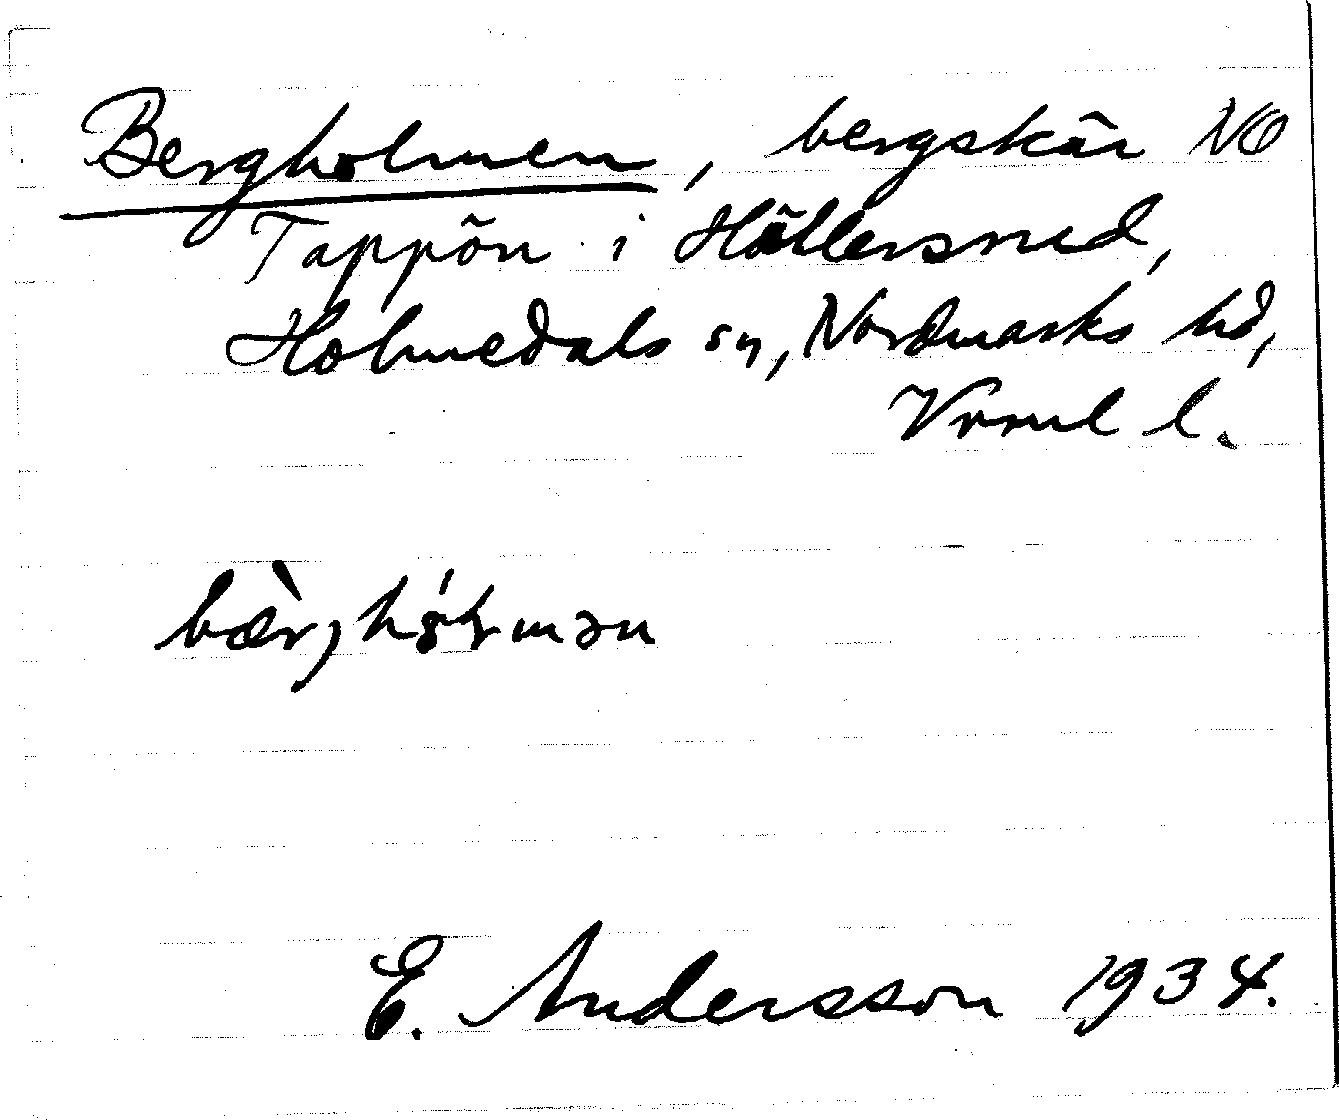 Bergholmen, bergskär NO
Tappön i Hällersrud,
Holmedals sn, Nordmarks hd,
Vrml l.
E. Andersson 1934.